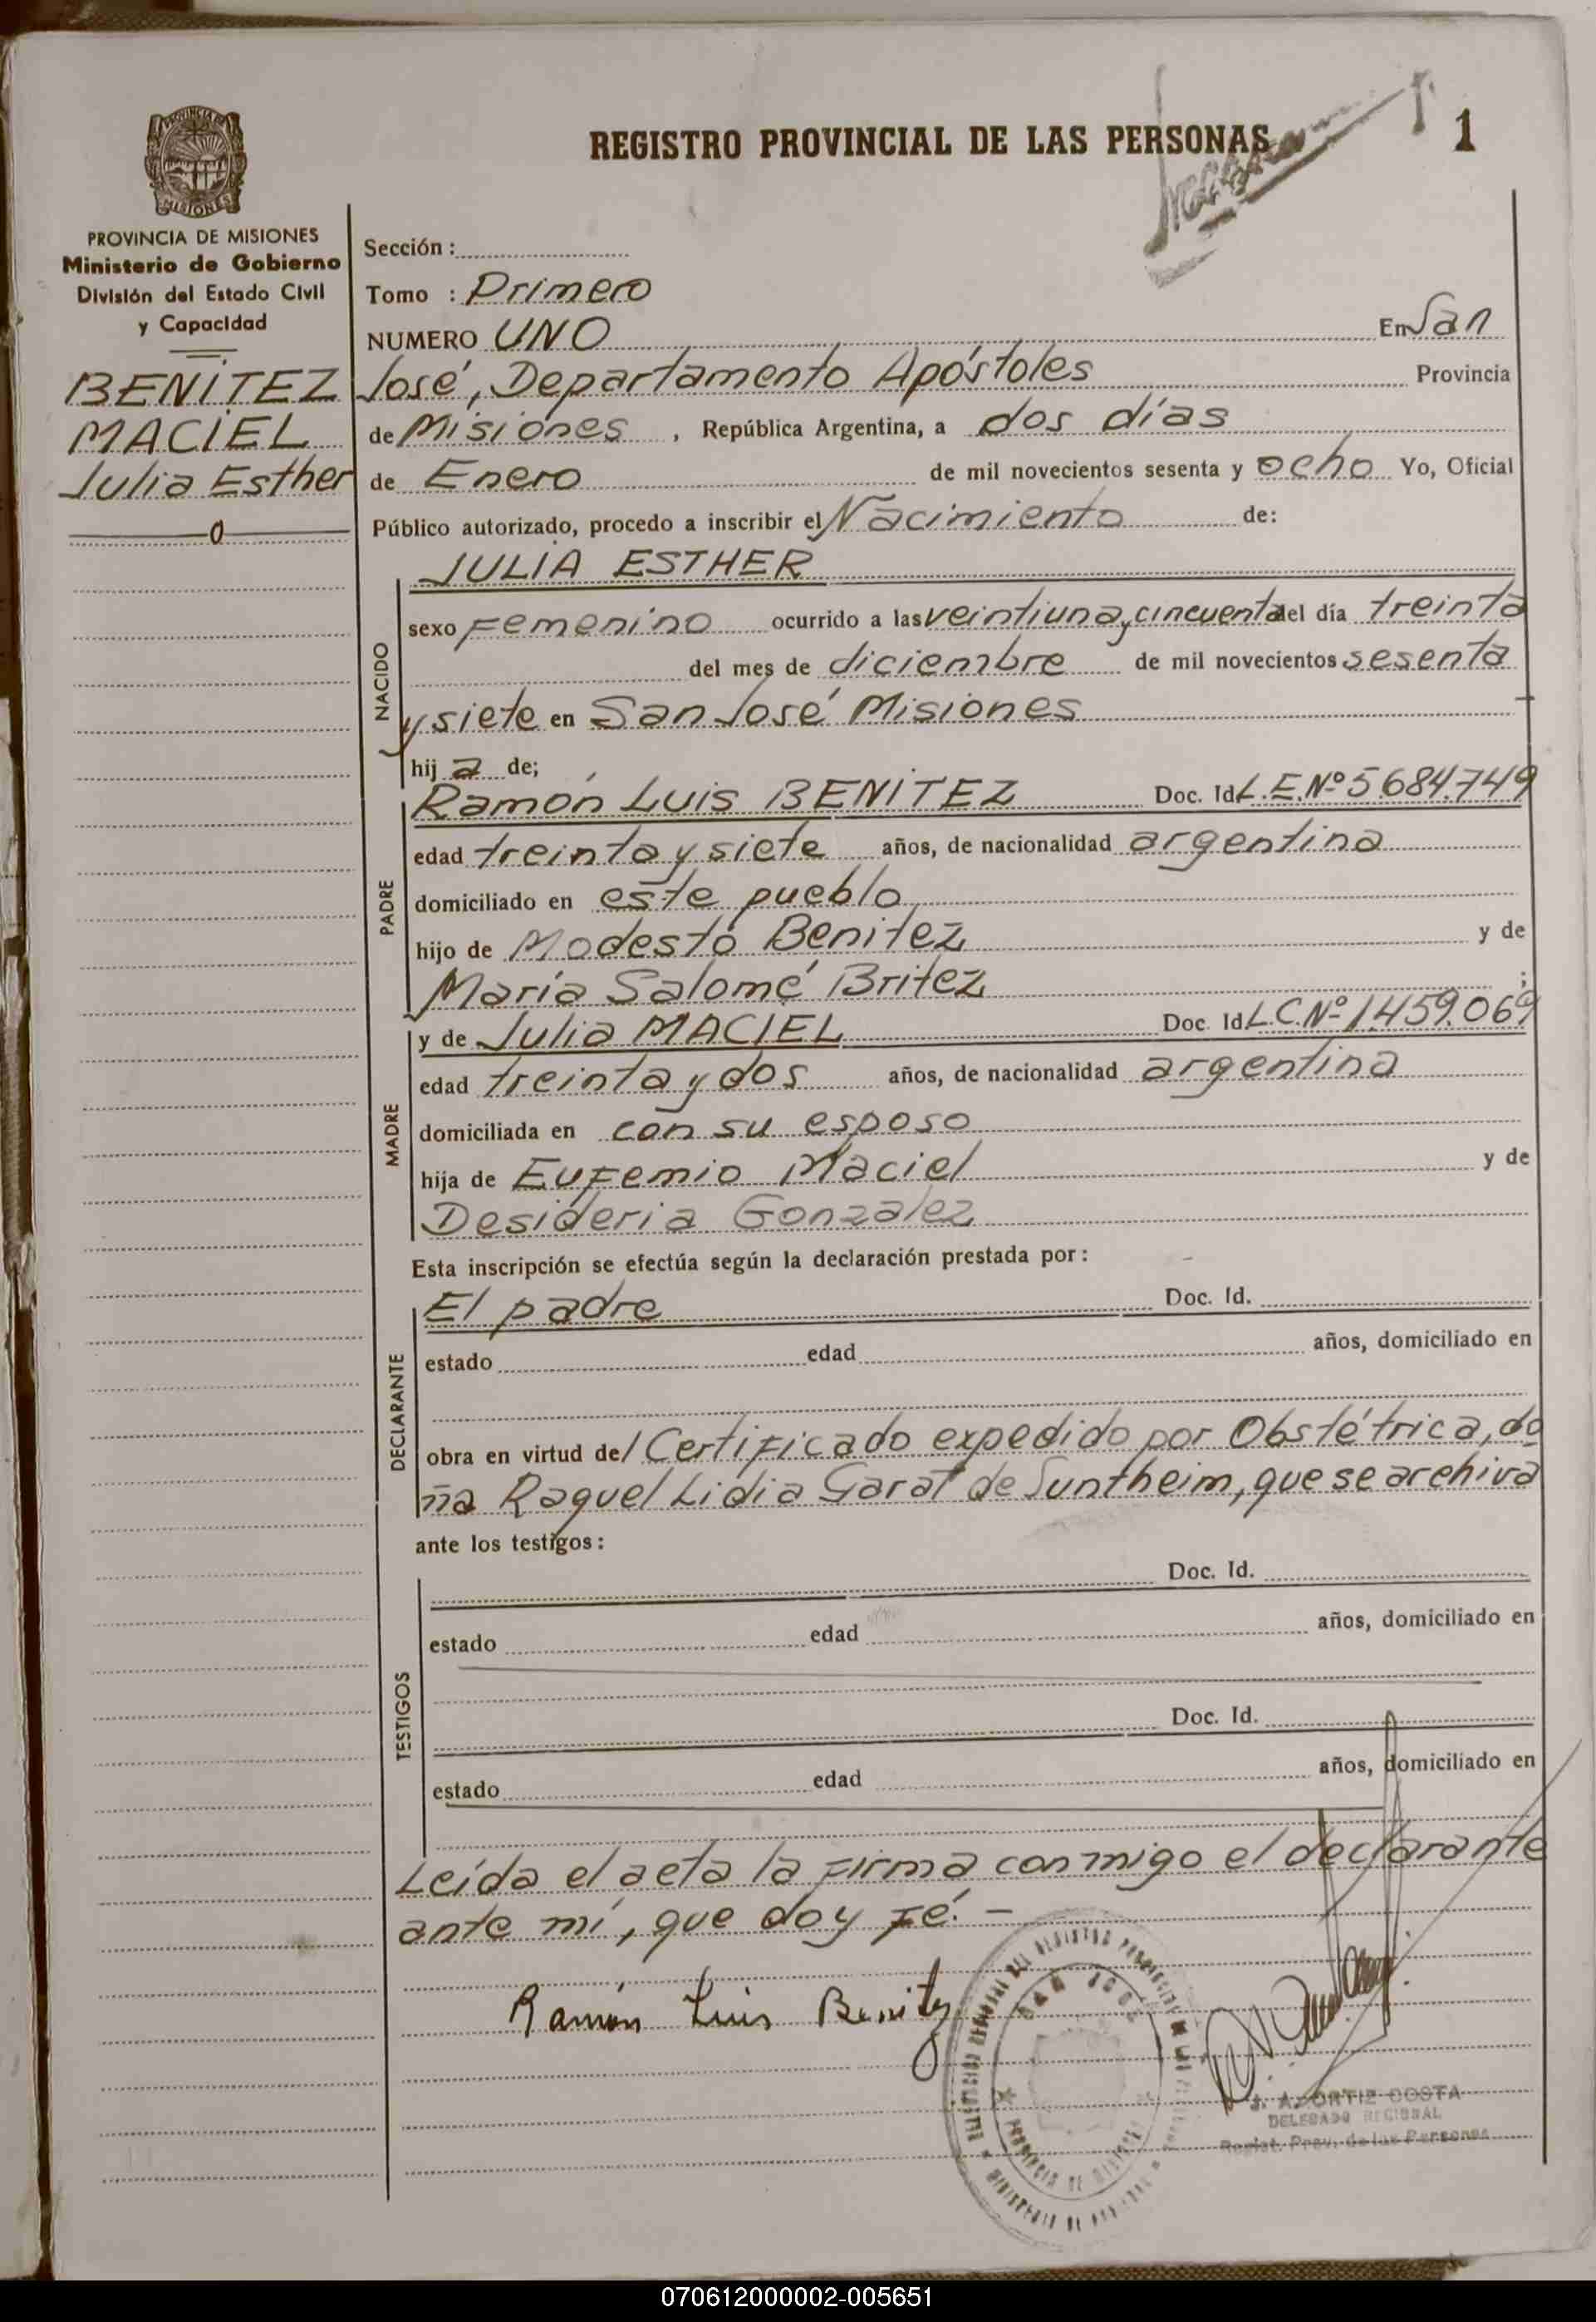 REGISTRO PROVINCIAL DE LAS PERSONAS
1
PROVINCIA DE MISIONES
Ministerio de Gobierno
División del Estado Civil
y Capacidad
BENÍTEZ
MACIEL
Julia Esther
Sección :
Tomo : Primero
NUMERO UNO En San
José, Departamento Apóstoles Provincia
de Misiones , República Argentina, a dos días
de Enero de mil novecientos sesenta y ocho Yo, Oficial
Público autorizado, procedo a inscribir el Nacimiento de:
NACIDO
JULIA ESTHER
sexo Femenino ocurrido a las veintiuna y cincuenta del día treinta
del mes de diciembre de mil novecientos sesenta
y siete en San José Misiones
hij a de;
PADRE
Ramón Luis BENÍTEZ Doc. Id L.E.Nº 5.684.749
edad treinta y siete años, de nacionalidad argentina
domiciliado en este pueblo
hijo de Modesto Benitez y de
María Salomé Britez ;
MADRE
y de Julia MACIEL Doc. Id L.C.Nº 1.459.069
edad treinta y dos años, de nacionalidad argentina
domiciliada en con su esposo
hija de Eufemio Maciel y de
Desideria Gonzalez
Esta inscripción se efectúa según la declaración prestada por:
DECLARANTE
El padre Doc. Id.
estado edad años, domiciliado en
obra en virtud del Certificado expedido por Obstétrica, do
ña Raquel Lidia Garat de Suntheim, que se archiva
ante los testigos:
TESTIGOS
Doc. Id.
estado edad años, domiciliado en
Doc. Id.
estado edad años, domiciliado en
Leída el acta la firma conmigo el declarante
ante mí, que doy fé. -
Ramón Luis Benitez
SAN JOSE
J. A. ORTIZ COSTA
DELEGADO REGIONAL
Regist. Prov. de las Personas
070612000002-005651